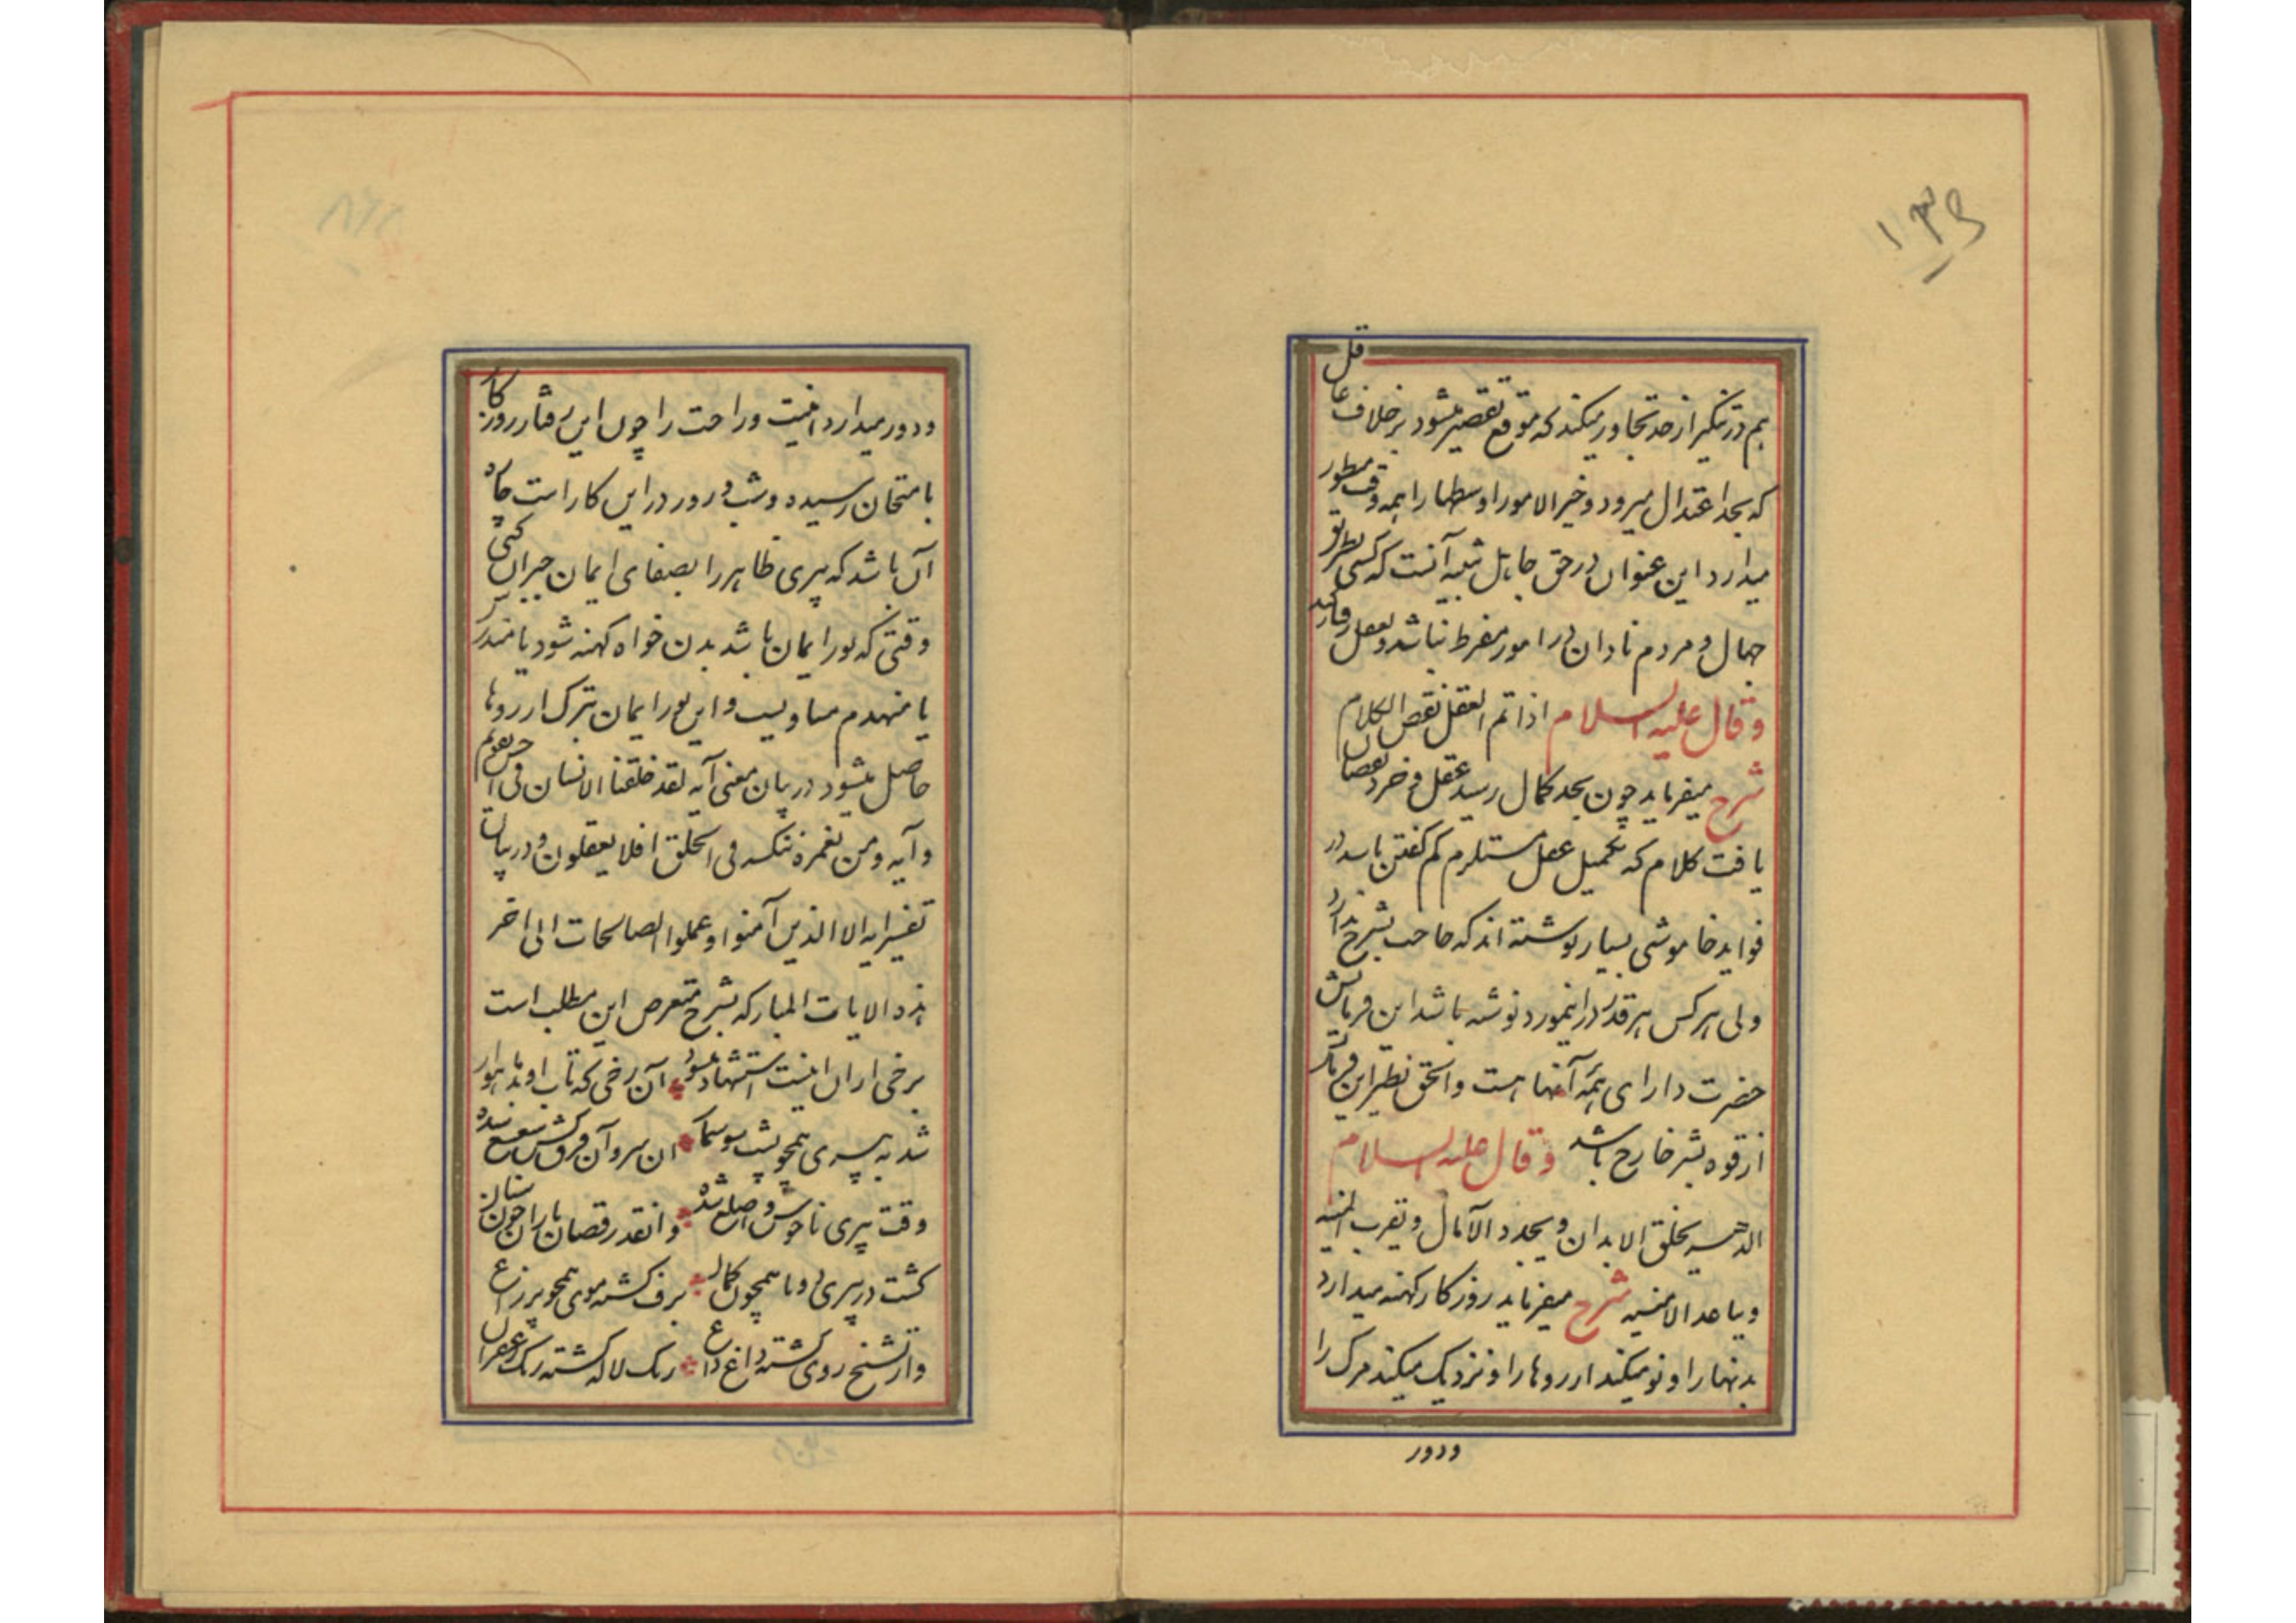 ۱۳۵
هم در تنگیر از حد تجاوز میکند که موقع تقصیر میشود برخلاف عاقل
که بحد اعتدال میرود و خیر الامور اوسطها را همه وقت منظور
میدارد این عنوان در حق جاهل شبیه آنست که کسی بطرتو
جهال و مردم نادان در امور مفرط نباشد و بعقل رفتار کند
وقال علیه السلام اذا تم العقل نقص الکلام
شرح میفرماید چون بحد کمال رسید عقل و خرد نقصان
یافت کلام که تکمیل عقل مستلزم کم گفتن باشد در
فواید خاموشی بسیار نوشته اند که حاجب بشرح ندارد
ولی هر کس هر قدر در اینمورد نوشته باشد این فرمایش
حضرت دارای همه آنها است والحق نظیر این فرمایش
از قوه بشر خارج باشد وقال علیه السلام
الدهر یخلق الابدان و یجدد الآمال و یقرب المنیه
و یباعد الامنیه شرح میفرماید روزکار کهنه میدارد
بدنها را و نو میکند ارزوها را و نزدیک میکند مرک را
ودور
ودور میدارد امنیت وراحت را چون این رفتار روزکار
بامتحان رسیده و شب و روز در این کار است چاه
آن باشد که پیری ظاهر را بصفای ایمان جبران کنی
وقتی که نور ایمان باشد بدن خواه کهنه شود یا مندرس
یا منهدم مساویست و این نور ایمان بترک ارزوها
حاصل میشود در بیان معنی آیه لقد خلقنا الانسان فی احسن تقویم
وآیه ومن نعمره ننکسه فی الخلق افلا یعقلون و در بیان
تفسیر ایه الا الذین آمنوا وعملوا الصالحات الی اخر
هذه الایات المبارکه بشرح متعرض این مطلب است
برخی از ان اینست استشهاد میشود آن رخی که تاب او بد ماهوار
شد به پیری همچو پشت سوسمار ان سر و آن فرق کش شعشع شده
وقت پیری ناخوش و اصلع شده وانقد رقصان یازان چون سنان
گشت در پیری دوتا همچون کمان برف گشته موی همچو پر زاغ
واز تشنج روی گشته داغ داغ رنک لاله گشته رنک زعفران